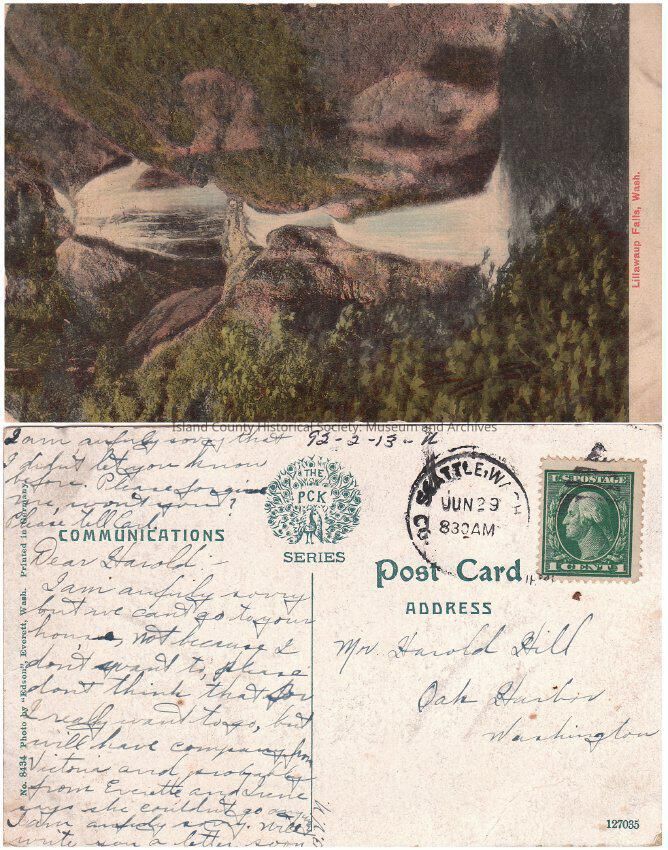 Lillawaup Falls, Wash.
Island County Historical Society: Museum and Archives
I am awfuly sorry that
I didn't let you know
before. Please forgive
me, won't you?
Please tell Carl.
92-2-13-
THE
PCK
SERIES
SEATTLE, WASH.
JUN 29
830AM
U.S. POSTAGE
1 CENT 1
COMMUNICATIONS
Post Card
ADDRESS
Dear Harold:-
I am awfuly sorry
but we can't go to your
home, not because I
don't want to, please
don't think that for
I really want to go, but
will have company from
Victoria and probably
from Everette and Irene
says she couldn't go
I am awfuly sorry. Will
write you a letter soon
Mr. Harold Hill
Oak Harbor
Washington
No. 8434 Photo by "Edson", Everett, Wash. Printed in Germany
127035